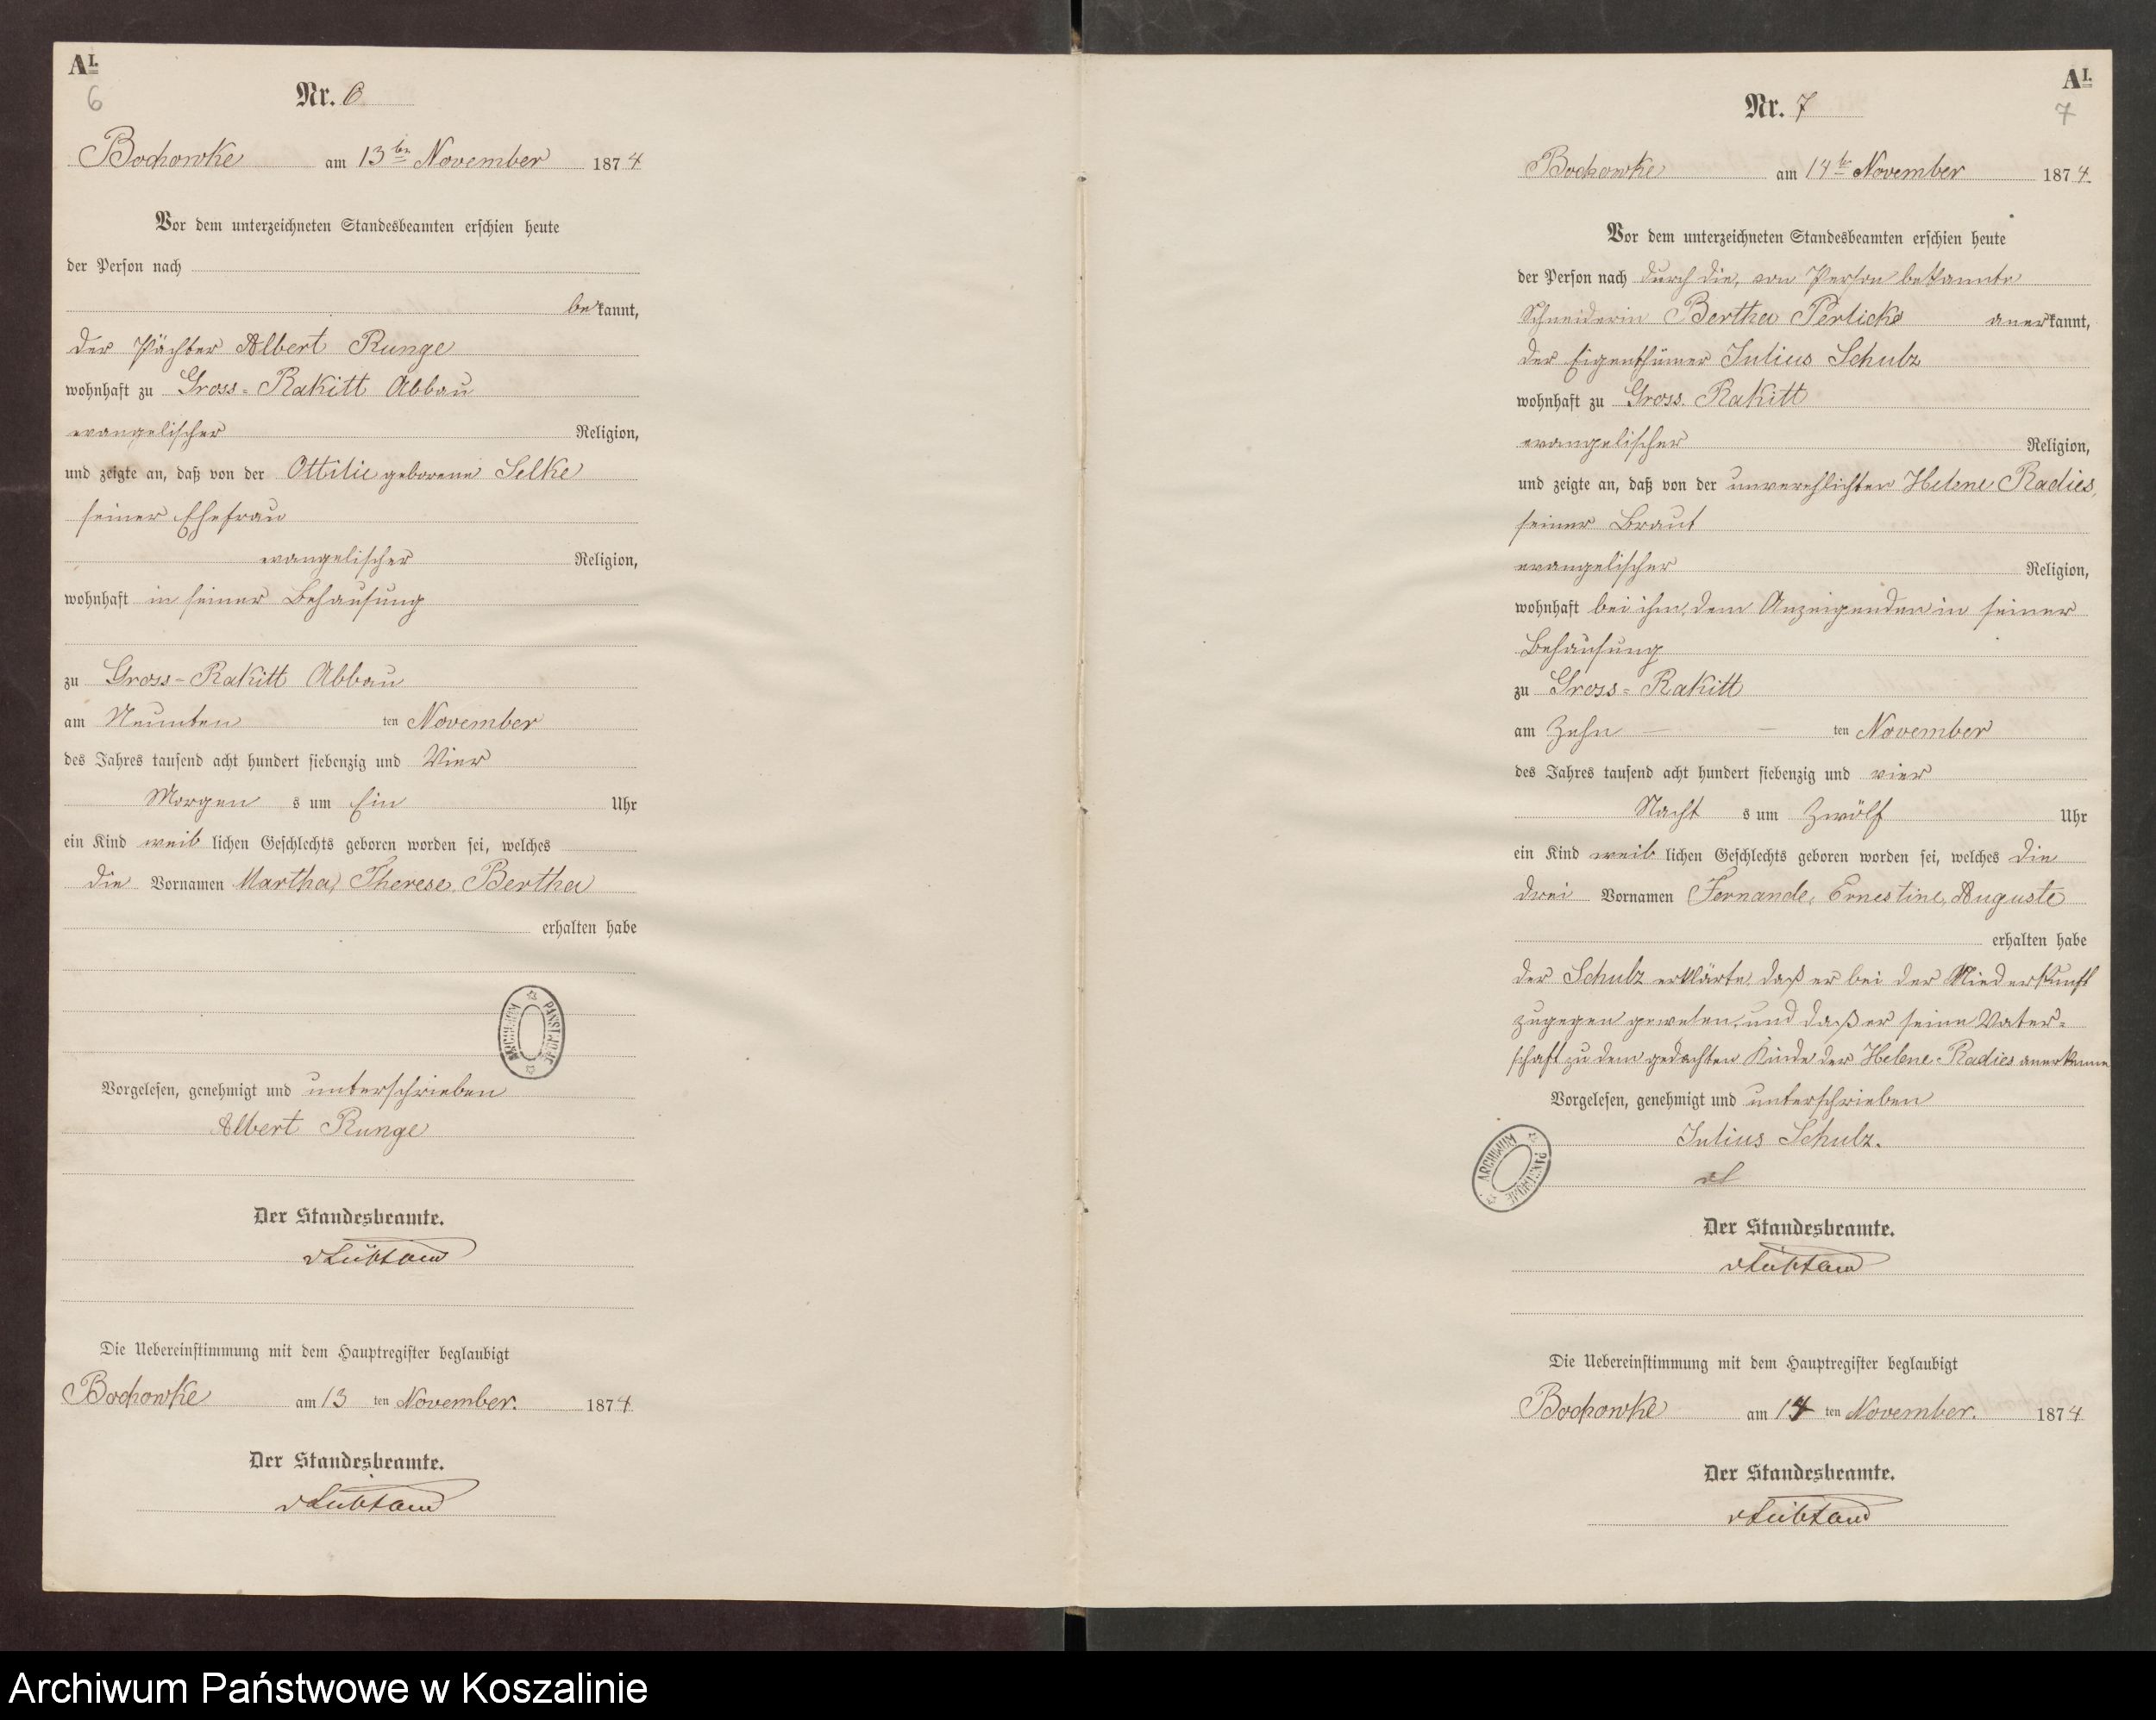 AI.
6
Nr. 6
Bochowke am 13ten November 1874
Vor dem unterzeichneten Standesbeamten erschien heute
der Person nach
bekannt,
der Pächter Albert Runge
wohnhaft zu Gross-Rakitt Abbau
evangelischer Religion,
und zeigte an, daß von der Ottilie geborene Selke
seiner Ehefrau
evangelischer Religion,
wohnhaft in seiner Behausung
zu Gross-Rakitt Abbau
am Neunten ten November
des Jahres tausend acht hundert siebenzig und Vier
Morgen s um Ein Uhr
ein Kind weiblichen Geschlechts geboren worden sei, welches
die Vornamen Martha, Therese, Bertha
erhalten habe
ARCHIWUM PAŃSTWOWE
Vorgelesen, genehmigt und unterschrieben
Albert Runge
Der Standesbeamte.
Die Uebereinstimmung mit dem Hauptregister beglaubigt
Bochowke am 13 ten November. 1874
Der Standesbeamte.
AI.
7
Nr. 7
Bochowke am 14te November 1874.
Vor dem unterzeichneten Standesbeamten erschien heute
der Person nach durch die, von Person bekannte
Schneiderin Bertha Perlicke anerkannt,
der Eigenthümer Julius Schulz
wohnhaft zu Gross-Rakitt
evangelischer Religion,
und zeigte an, daß von der unverehlichten Helene Radies,
seiner Braut
evangelischer Religion,
wohnhaft bei ihm, dem Anzeigenden in seiner
Behausung
zu Gross-Rakitt
am Zehn — — ten November
des Jahres tausend acht hundert siebenzig und vier
Nacht s um Zwölf Uhr
ein Kind weiblichen Geschlechts geboren worden sei, welches die
drei Vornamen Fernande, Ernestine, Auguste
erhalten habe
der Schulz erklärte, daß er bei der Niederkunft
zugegen gewesen, und daß er seine Vater-
schaft zu dem gedachten Kinde der Helene Radies anerkenne
Vorgelesen, genehmigt und unterschrieben
Julius Schulz.
ARCHIWUM PAŃSTWOWE
Der Standesbeamte.
Die Uebereinstimmung mit dem Hauptregister beglaubigt
Bochowke am 14 ten November. 1874
Der Standesbeamte.
Archiwum Państwowe w Koszalinie